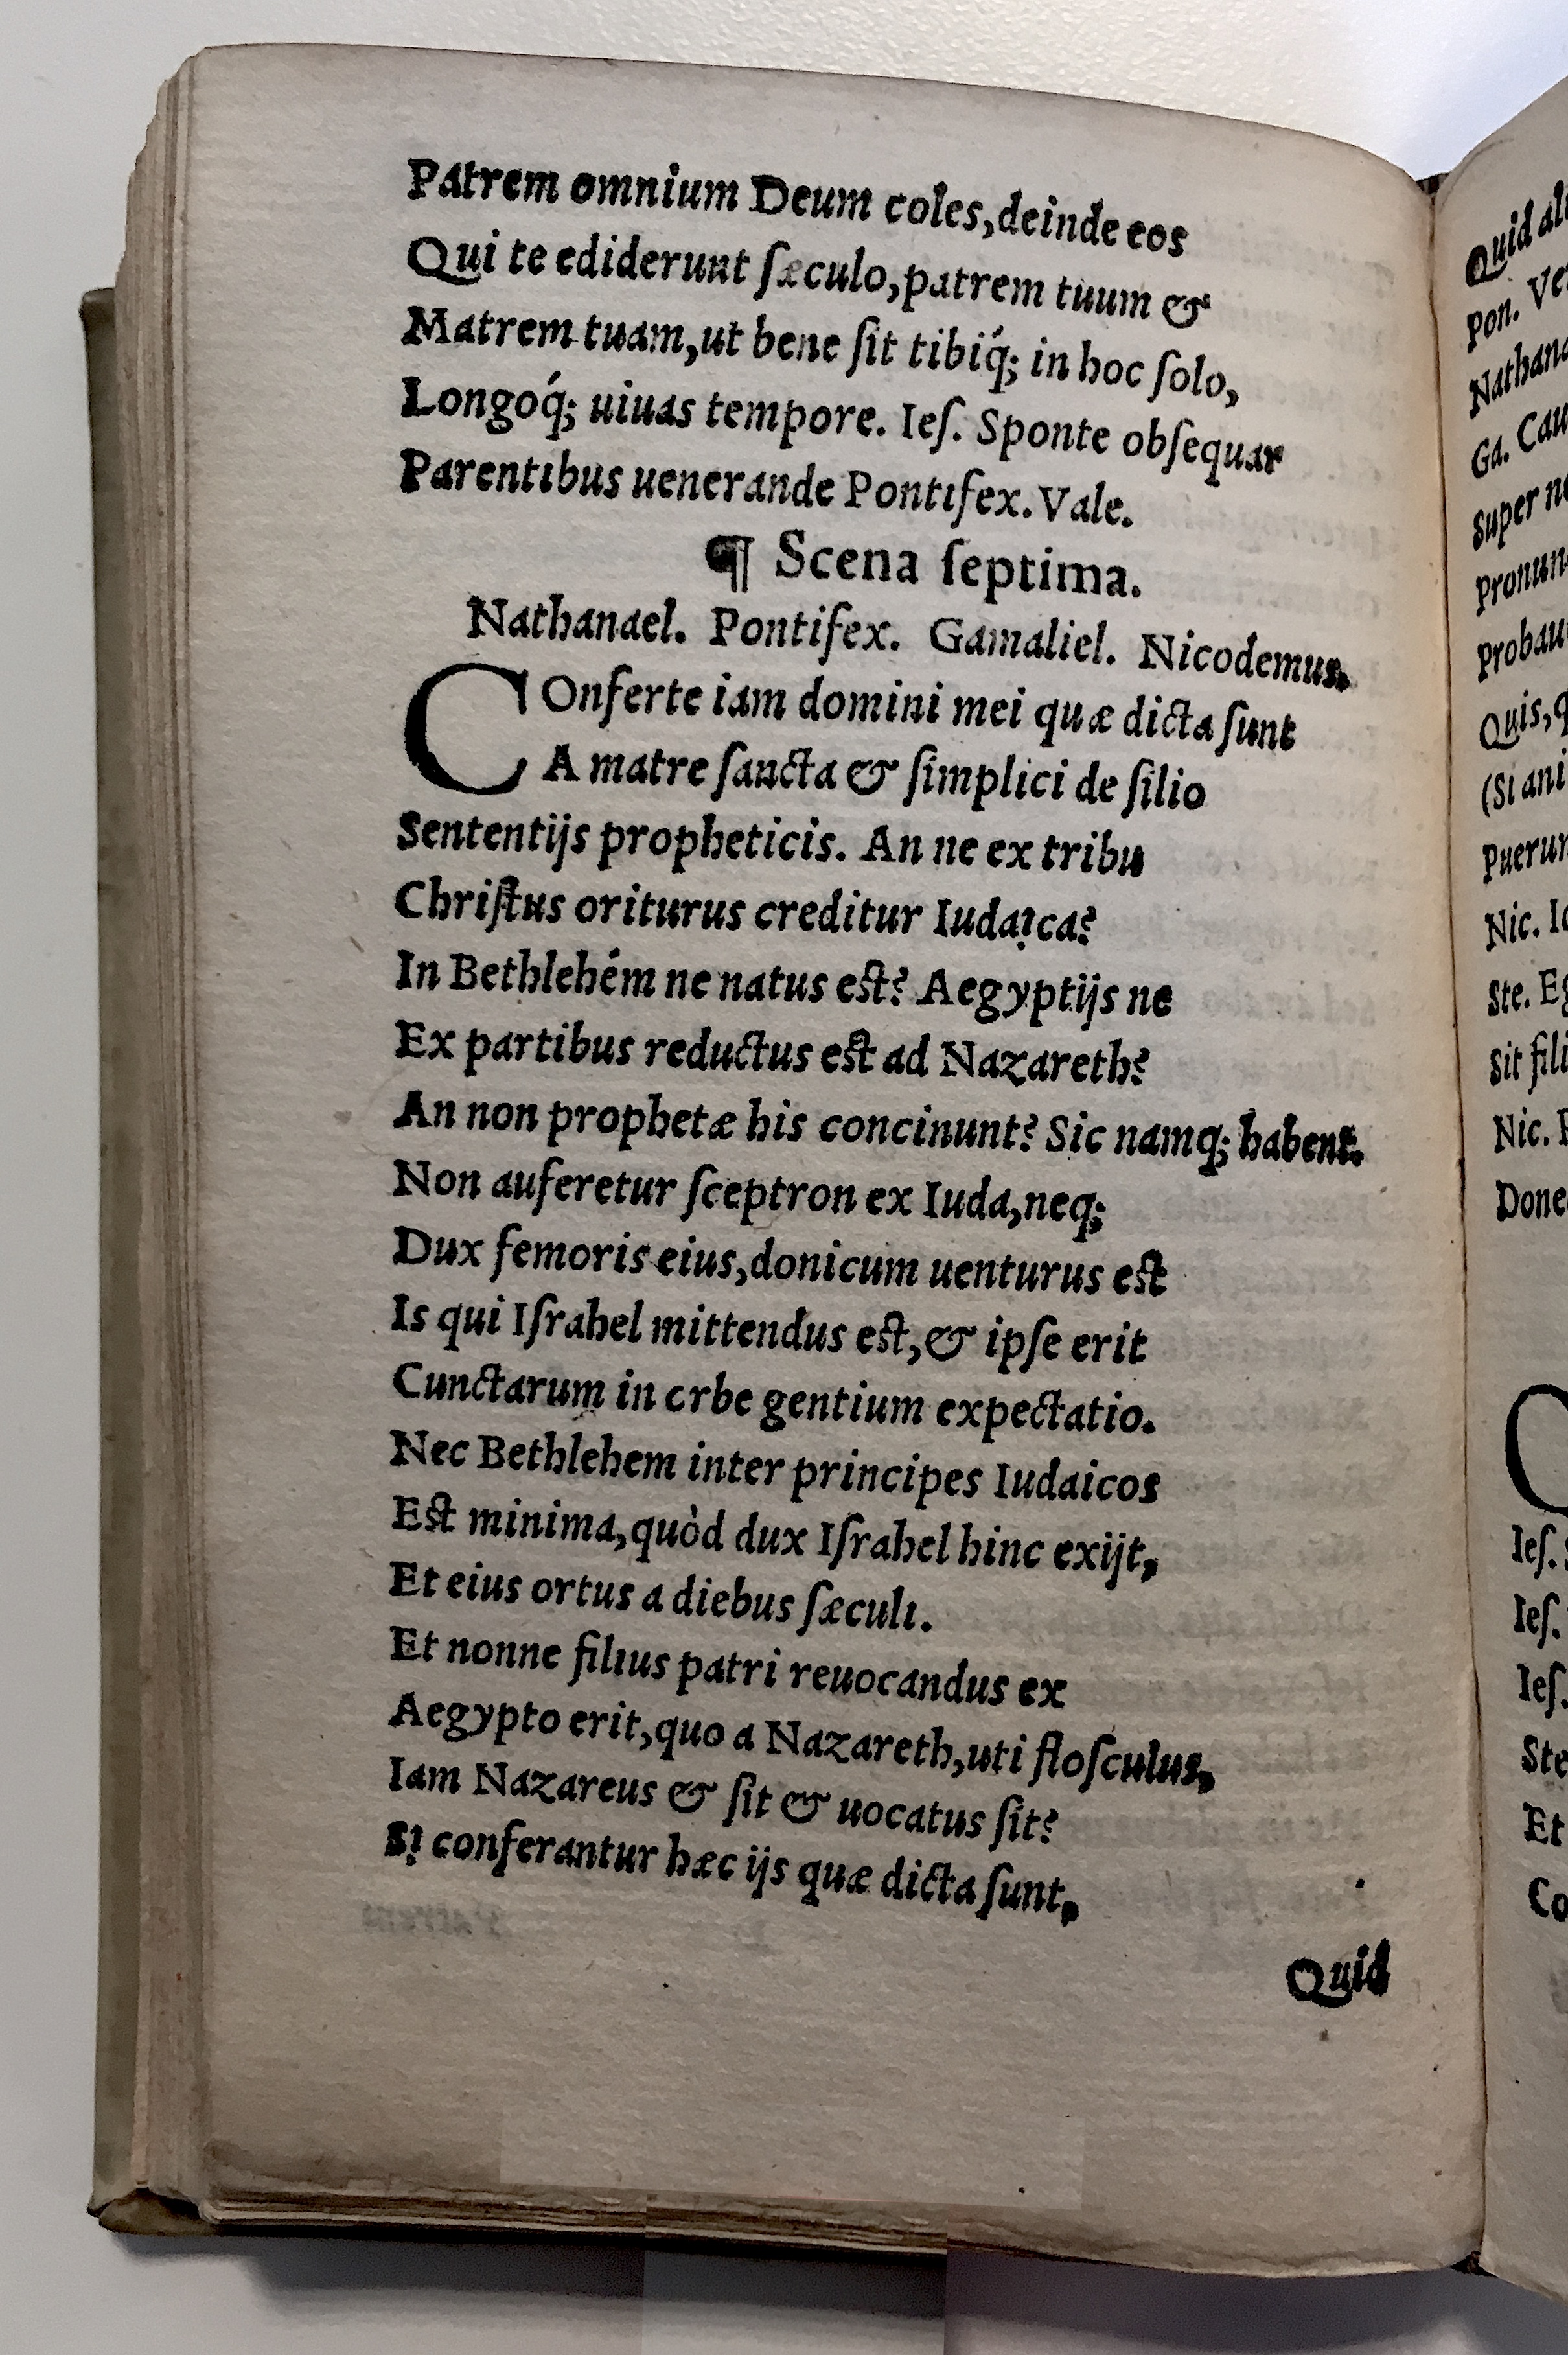 Patrem omnium Deum coles,deinde eos
Qui te ediderunt ſæculo,patrem tuum &
Matrem tuam,ut bene ſit tibiq́; in hoc ſolo,
Longoq́; uiuas tempore. Ieſ. Sponte obſequar
Parentibus uenerande Pontifex. Vale.
¶ Scena ſeptima.
Nathanael. Pontifex. Gamaliel. Nicodemus.
COnferte iam domini mei quæ dicta ſunt
A matre ſancta & ſimplici de filio
Sententijs propheticis. An ne ex tribu
Chriſtus oriturus creditur Iudaica?
In Bethlehém ne natus eſt? Aegyptijs ne
Ex partibus reductus eſt ad Nazareth?
An non prophetæ his concinunt? Sic namq; habent.
Non auferetur ſceptron ex Iuda,neq;
Dux femoris eius,donicum uenturus eſt
Is qui Iſrahel mittendus eſt,& ipſe erit
Cunctarum in crbe gentium expectatio.
Nec Bethlehem inter principes Iudaicos
Eſt minima,quòd dux Iſrahel hinc exijt,
Et eius ortus a diebus ſæculi.
Et nonne filius patri reuocandus ex
Aegypto erit,quo a Nazareth,uti floſculus,
Iam Nazareus & ſit & uocatus ſit?
Si conferantur hæc ijs quæ dicta ſunt,
Quid
Quid
Pon.
Nathana
Ga.
Super
Quis,
(Si
Nic.
Ste.
Sit
Nic.
Ieſ.
Ieſ.
Ieſ.
Et